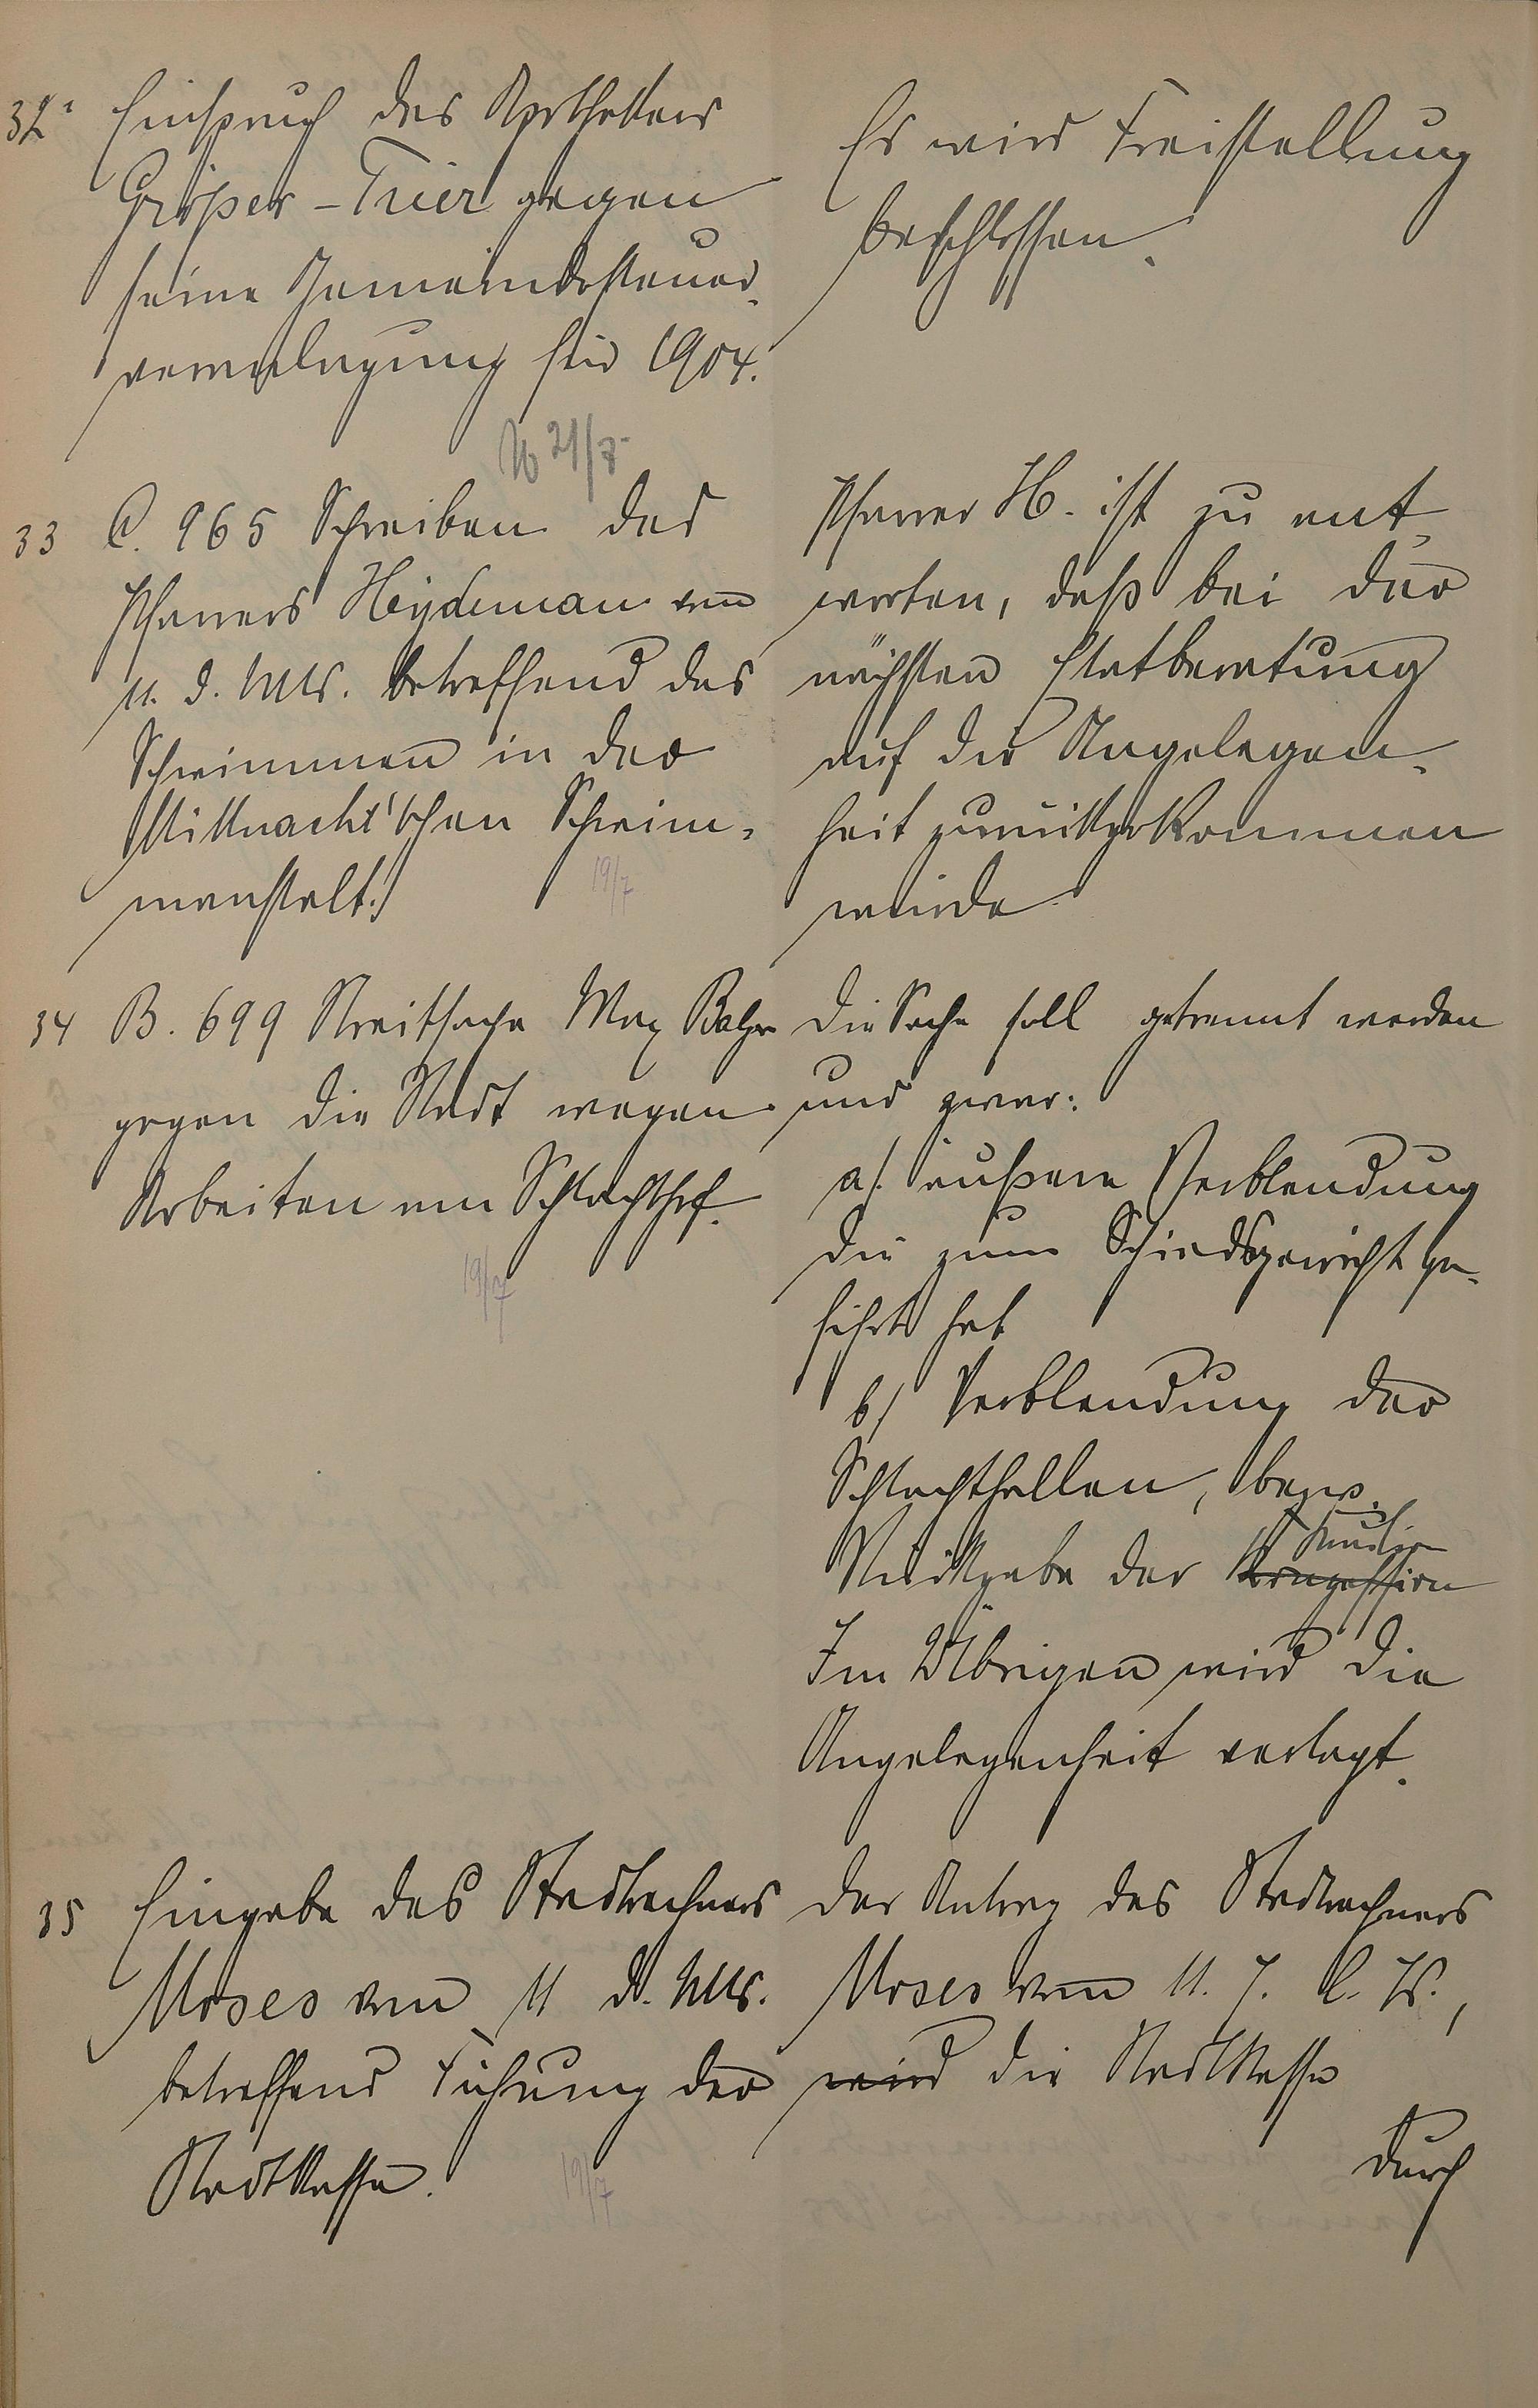 32a Einspruch des Apothekers
Gröper-Trier gegen
seine Gemeindesteuer-
veranlagung für 1904.
Es wird Freistellung
beschlossen.
21/7
33 C. 965 Schreiben des
Pfarrers Heydeman vom
11. d. Mts. betreffend das
Schwimmen in der
Mittnacht'schen Schwim-
manstalt.
19/7
Pfarrer H. ist zu ant-
worten, daß bei der
nächsten Etatberatung
auf die Angelegen-
heit zurückgekommen
würde.
34 B. 699 Streitsache Max Bahr
gegen die Stadt wegen
Arbeiten am Schlachthof.
19/7
Die Sache soll getrennt werden
und zwar:
a/. äußere Verblendung
die zum Schiedsgericht ge-
führt hat
b/ Verblendung der
Schlachthallen, bezw.
Kaution
Rückgabe der Konzession
Im Übrigen wird die
Angelegenheit vertagt.
35 Eingabe des Stadtrechners
Moses vom 11 d. Mts.
betreffend Führung der
Stadtkasse.
19/7
Der Antrag des Stadtrechners
Moses vom 11. 7. l. Js.,
wird die Stadtkasse
durch